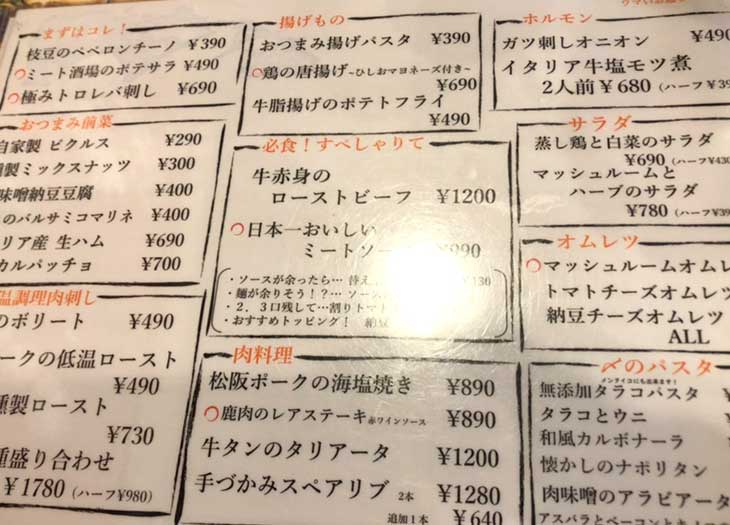 まずはコレ！
枝豆のペペロンチーノ ¥390
ミート酒場のポテサラ ¥490
極みトロレバ刺し ¥690
おつまみ前菜
自家製 ピクルス ¥290
製ミックスナッツ ¥300
味噌納豆豆腐 ¥400
のバルサミコマリネ ¥400
リア産 生ハム ¥690
カルパッチョ ¥700
温調理肉刺し
のボリート ¥490
ークの低温ロースト
¥490
燻製ロースト
¥730
種盛り合わせ
¥1780 (ハーフ¥980)
揚げもの
おつまみ揚げパスタ ¥390
鶏の唐揚げ~ひしおマヨネーズ付き~
¥690
牛脂揚げのポテトフライ
¥490
必食！すぺしゃりて
牛赤身の
ローストビーフ ¥1200
日本一おいしい
ミートソー 990
・ソースが余ったら… 替え 130
・麺が余りそう！?… ソース
・２，３口残して…割りトマト
・おすすめトッピング！ 納豆
肉料理
松阪ポークの海塩焼き ¥890
鹿肉のレアステーキ 赤ワインソース ¥890
牛タンのタリアータ ¥1200
手づかみスペアリブ 2本 ¥1280
追加1本 ¥640
ホルモン
ガツ刺しオニオン ¥490
イタリア牛塩モツ煮
2人前 ¥680 (ハーフ¥39
サラダ
蒸し鶏と白菜のサラダ
¥690 (ハーフ¥430
マッシュルームと
ハーブのサラダ
¥780 (ハーフ¥39
オムレツ
マッシュルームオムレ
トマトチーズオムレツ
納豆チーズオムレツ
ALL
〆のパスタ
メンタイコにも出来ます！
無添加タラコパスタ ¥
タラコとウニ ¥
和風カルボナーラ ¥
懐かしのナポリタン
肉味噌のアラビアータ
アスパラとベーコン